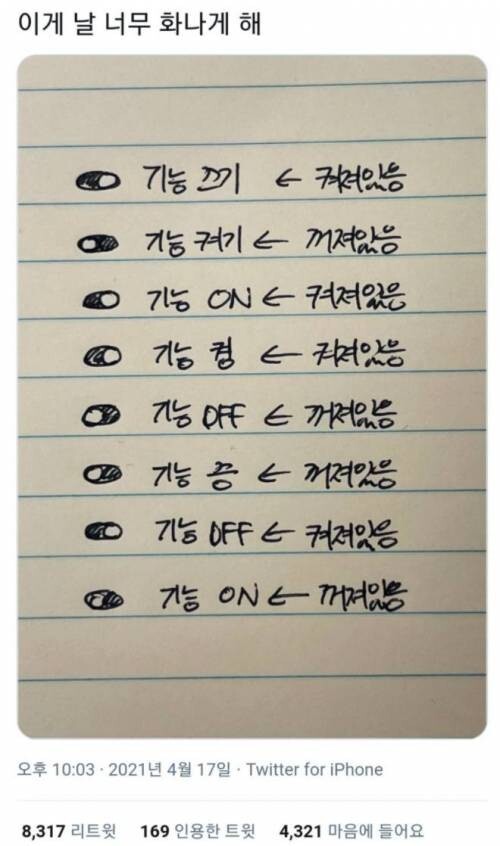 이게 날 너무 화나게 해
기능 끄기 ← 켜져있음
기능 켜기 ← 꺼져있음
기능 ON ← 켜져있음
기능 켬 ← 켜져있음
기능 OFF ← 꺼져있음
기능 끔 ← 꺼져있음
기능 OFF ← 켜져있음
기능 ON ← 꺼져있음
오후 10:03 · 2021년 4월 17일 · Twitter for iPhone
8,317 리트윗 169 인용한 트윗 4,321 마음에 들어요